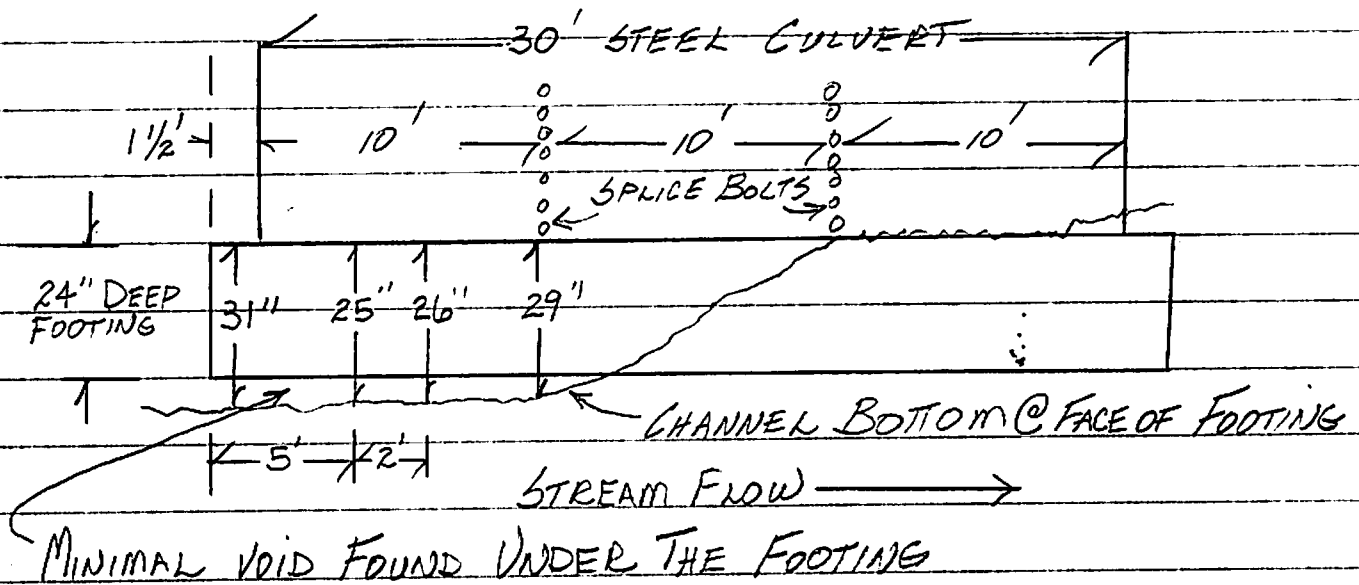 30' STEEL CULVERT
1 1/2' 10' 10' 10'
SPLICE BOLTS
24" DEEP
FOOTING
31" 25" 26" 29"
CHANNEL BOTTOM @ FACE OF FOOTING
5' 2'
STREAM FLOW
MINIMAL VOID FOUND UNDER THE FOOTING